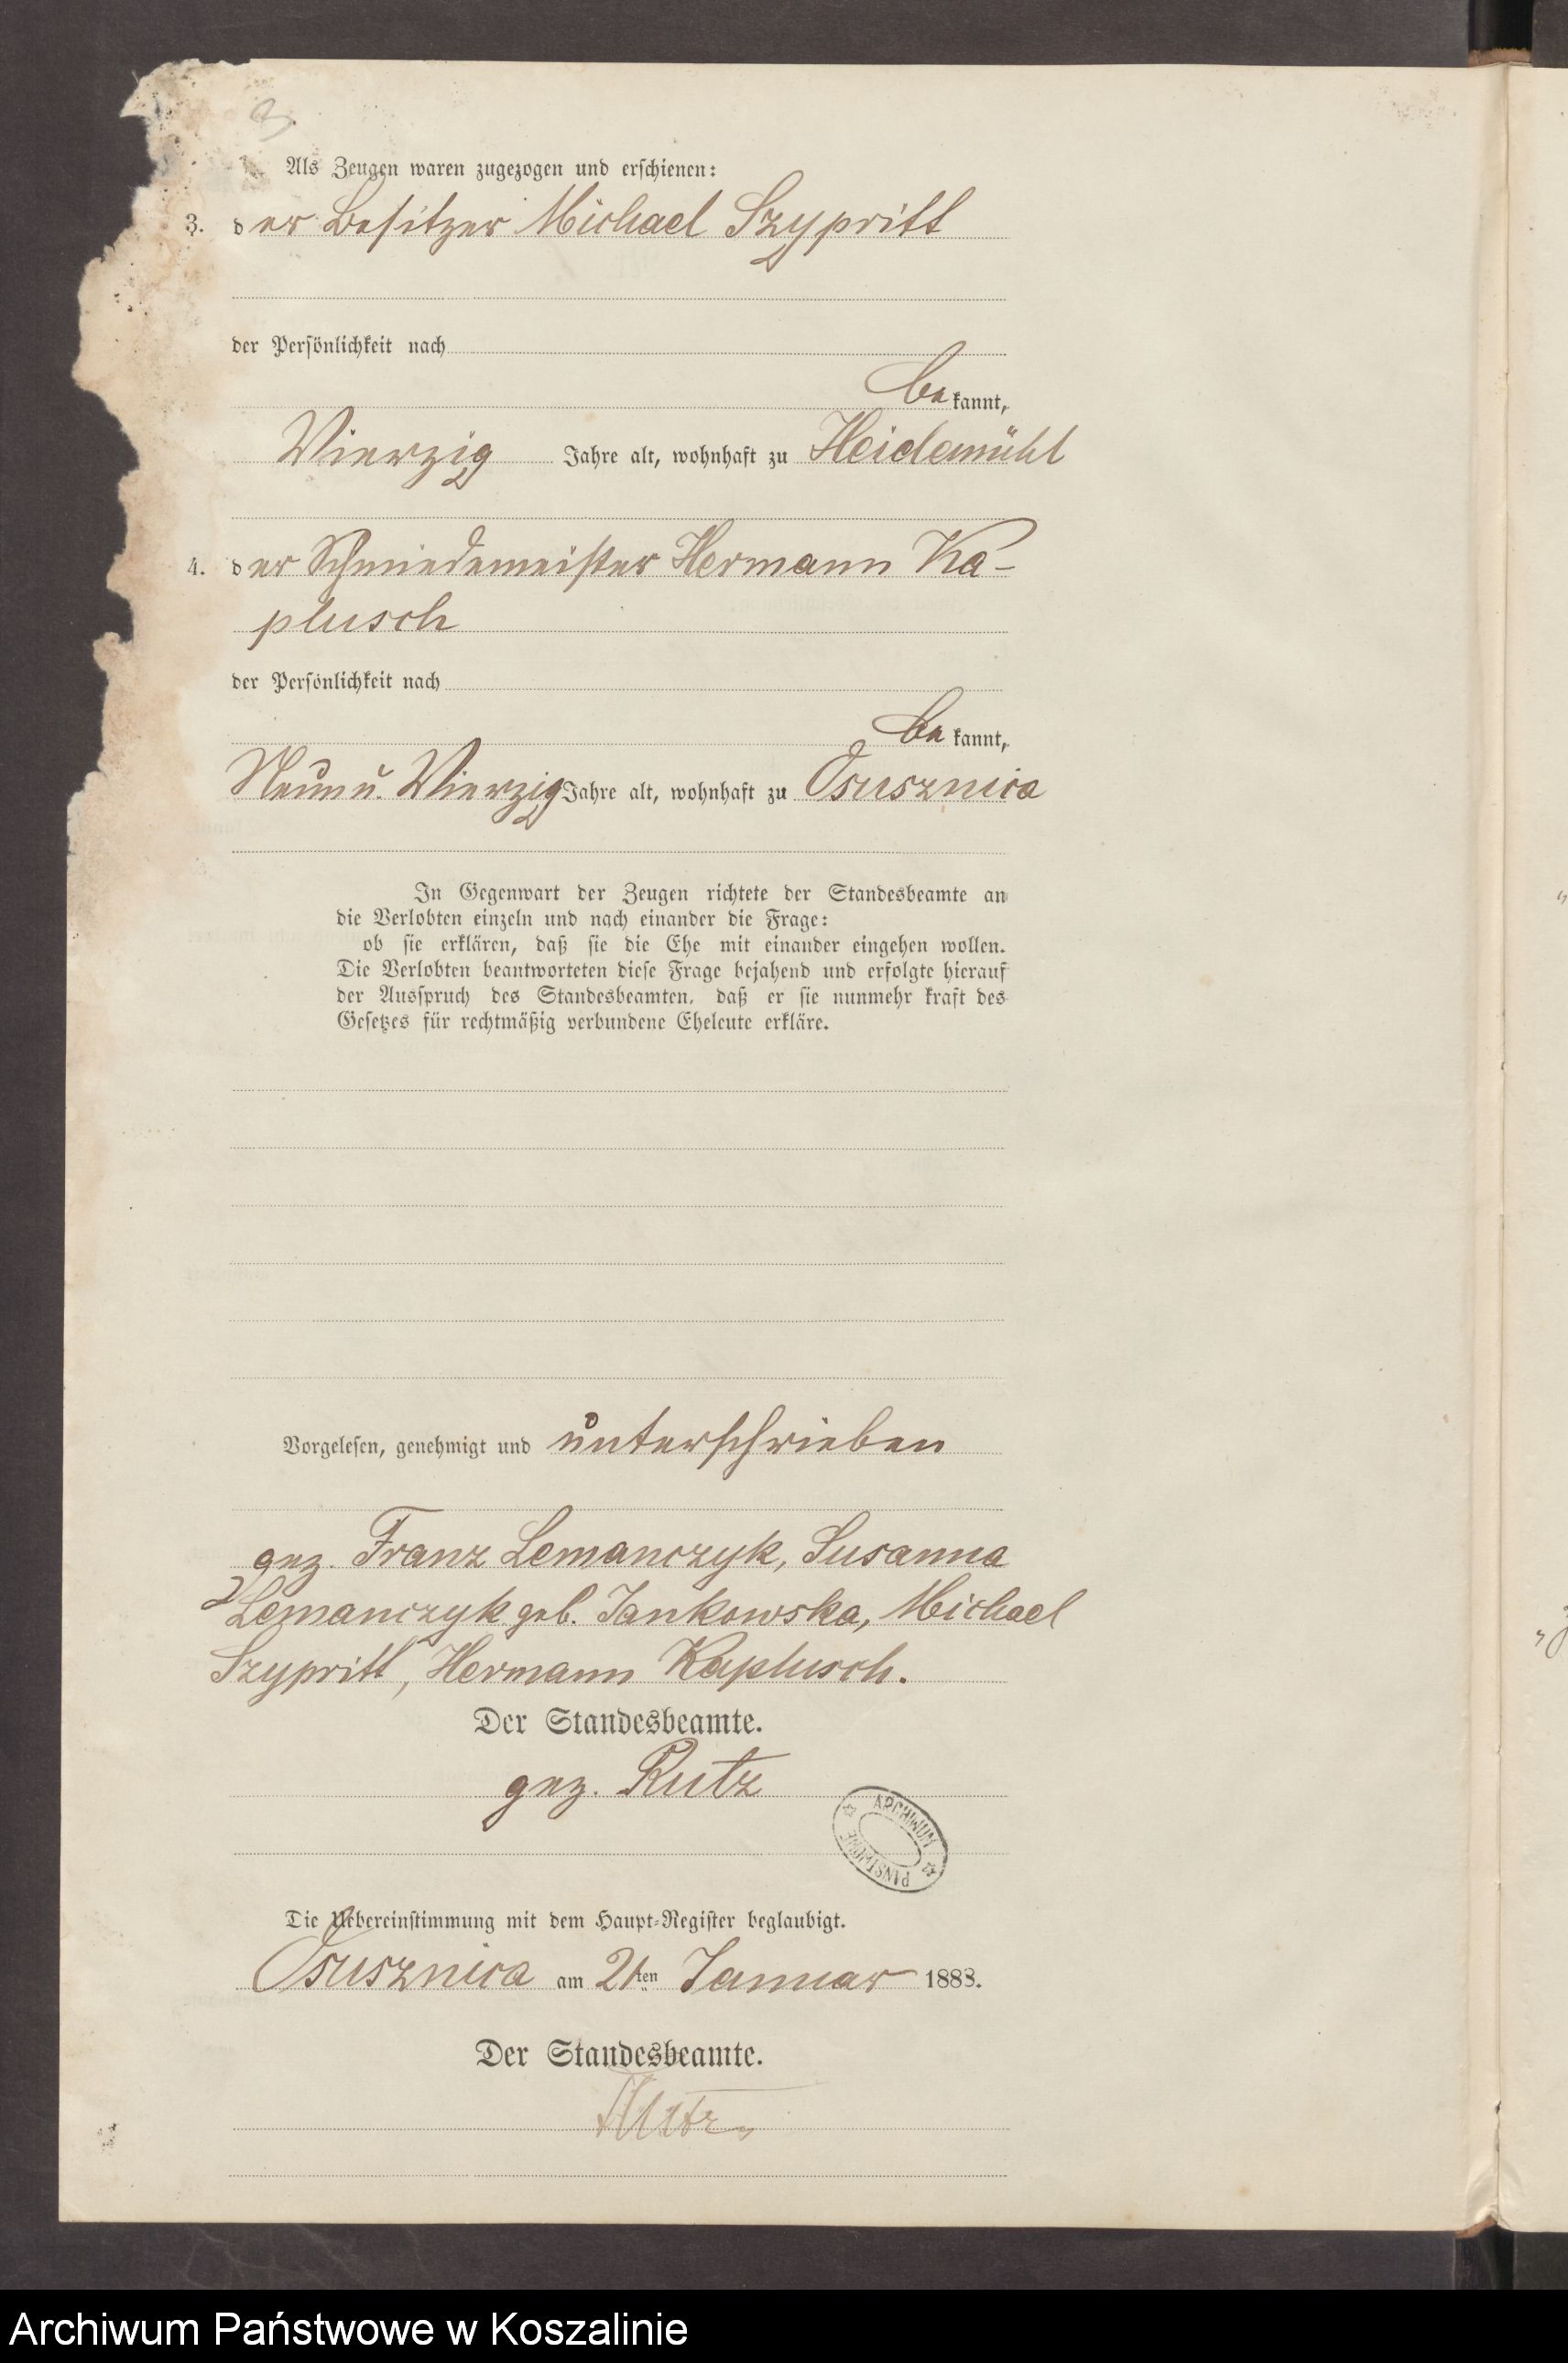 3.
Als Zeugen waren zugezogen und erschienen:
3. der Besitzer Michael Szypritt
der Persönlichkeit nach
bekannt,
Vierzig Jahre alt, wohnhaft zu Heidemühl
4. der Schmiedemeister Hermann Ka-
plusch
der Persönlichkeit nach
bekannt,
Neun u. Vierzig Jahre alt, wohnhaft zu Osusznica
In Gegenwart der Zeugen richtete der Standesbeamte an
die Verlobten einzeln und nach einander die Frage:
ob sie erklären, daß sie die Ehe mit einander eingehen wollen.
Die Verlobten beantworteten diese Frage bejahend und erfolgte hierauf
der Ausspruch des Standesbeamten, daß er sie nunmehr kraft des
Gesetzes für rechtmäßig verbundene Eheleute erkläre.
Vorgelesen, genehmigt und unterschrieben
gez. Franz Lemanczyk, Susanna
Lemanczyk geb. Jankowska, Michael
Szypritt, Hermann Kaplusch.
Der Standesbeamte.
gez. Rutz
ARCHIWUM PAŃSTWOWE
Die Uebereinstimmung mit dem Haupt-Register beglaubigt.
Osusznica am 21ten Januar 1888.
Der Standesbeamte.
Rutz
Archiwum Państwowe w Koszalinie